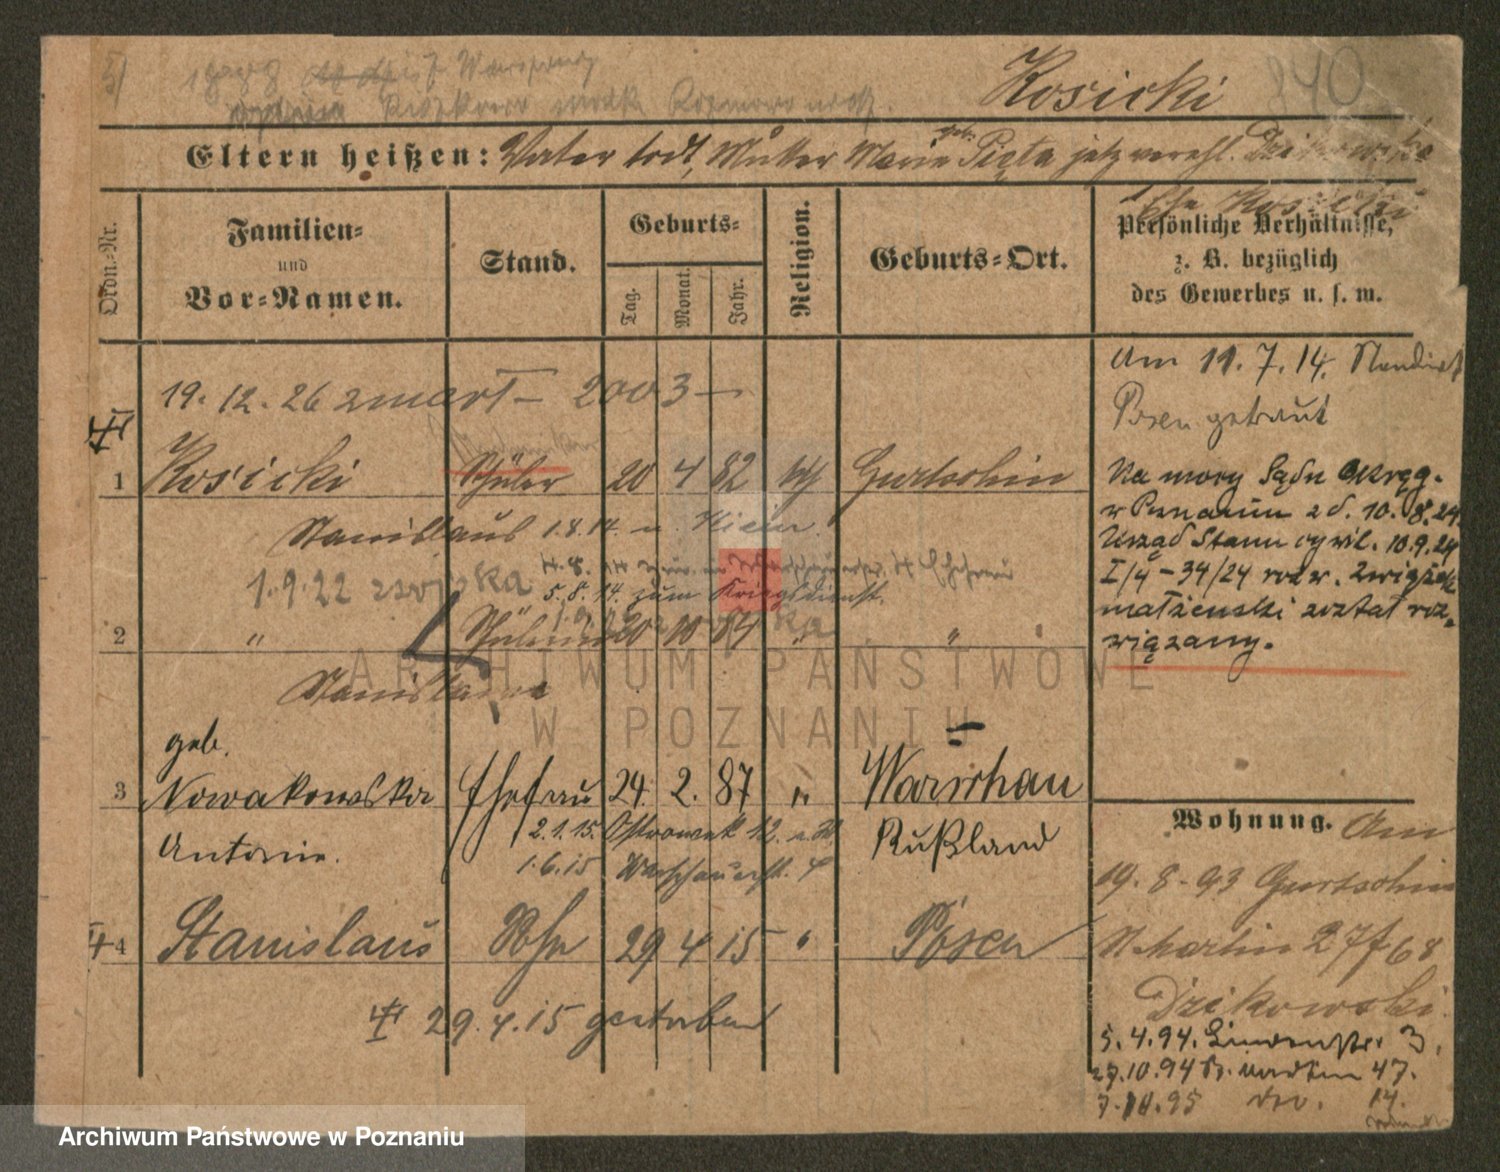 5)
Kosicki
840
Eltern heißen: Vater todt, Mutter Marie geb. Pięta jetz verehl. Dzikowska
Ordn.-Nr.
Familien- und Vor-Namen.
Stand.
Geburts-
Tag.
Monat.
Jahr.
Religion.
Geburts-Ort.
Persönliche Verhältnisse,
z. B. bezüglich
des Gewerbes u. s. w.
19. 12. 26 zmarł - 2003 -
1 Kosicki Schüler 20 4 82 kth Gurtschin
Stanislaus 1.8.14. n.
1.9.22 5.8.14. zum Kriegsdienst.
2 " Schülerin 20 10 84 " "
Stanislawa
geb.
3 Nowakowska Ehefrau 24. 2. 87 " Warschau
Antonie. 2.1.15. Rußland
1.6.15 Warschauerstr. 4
4 Stanislaus Sohn 29 4 15 " Posen
29.4.15 gestorben
Am 11. 7. 14. Standesamt
Posen getraut
Na mocy Sądu Okręg.
w Poznaniu z d. 10.8.24
Urząd Stanu cywil. 10.9.24
I/4-34/24 rozw. Związek
małżeński został roz-
wiązany.
Wohnung. Am
19.8.93 Gurtschin
St Martin 27 f 68
Dzikowski.
5.4.94. 3.
27.10.94 St. Martin 47.
do. 14.
ARCHIWUM PAŃSTWOWE
W POZNANIU
Archiwum Państwowe w Poznaniu